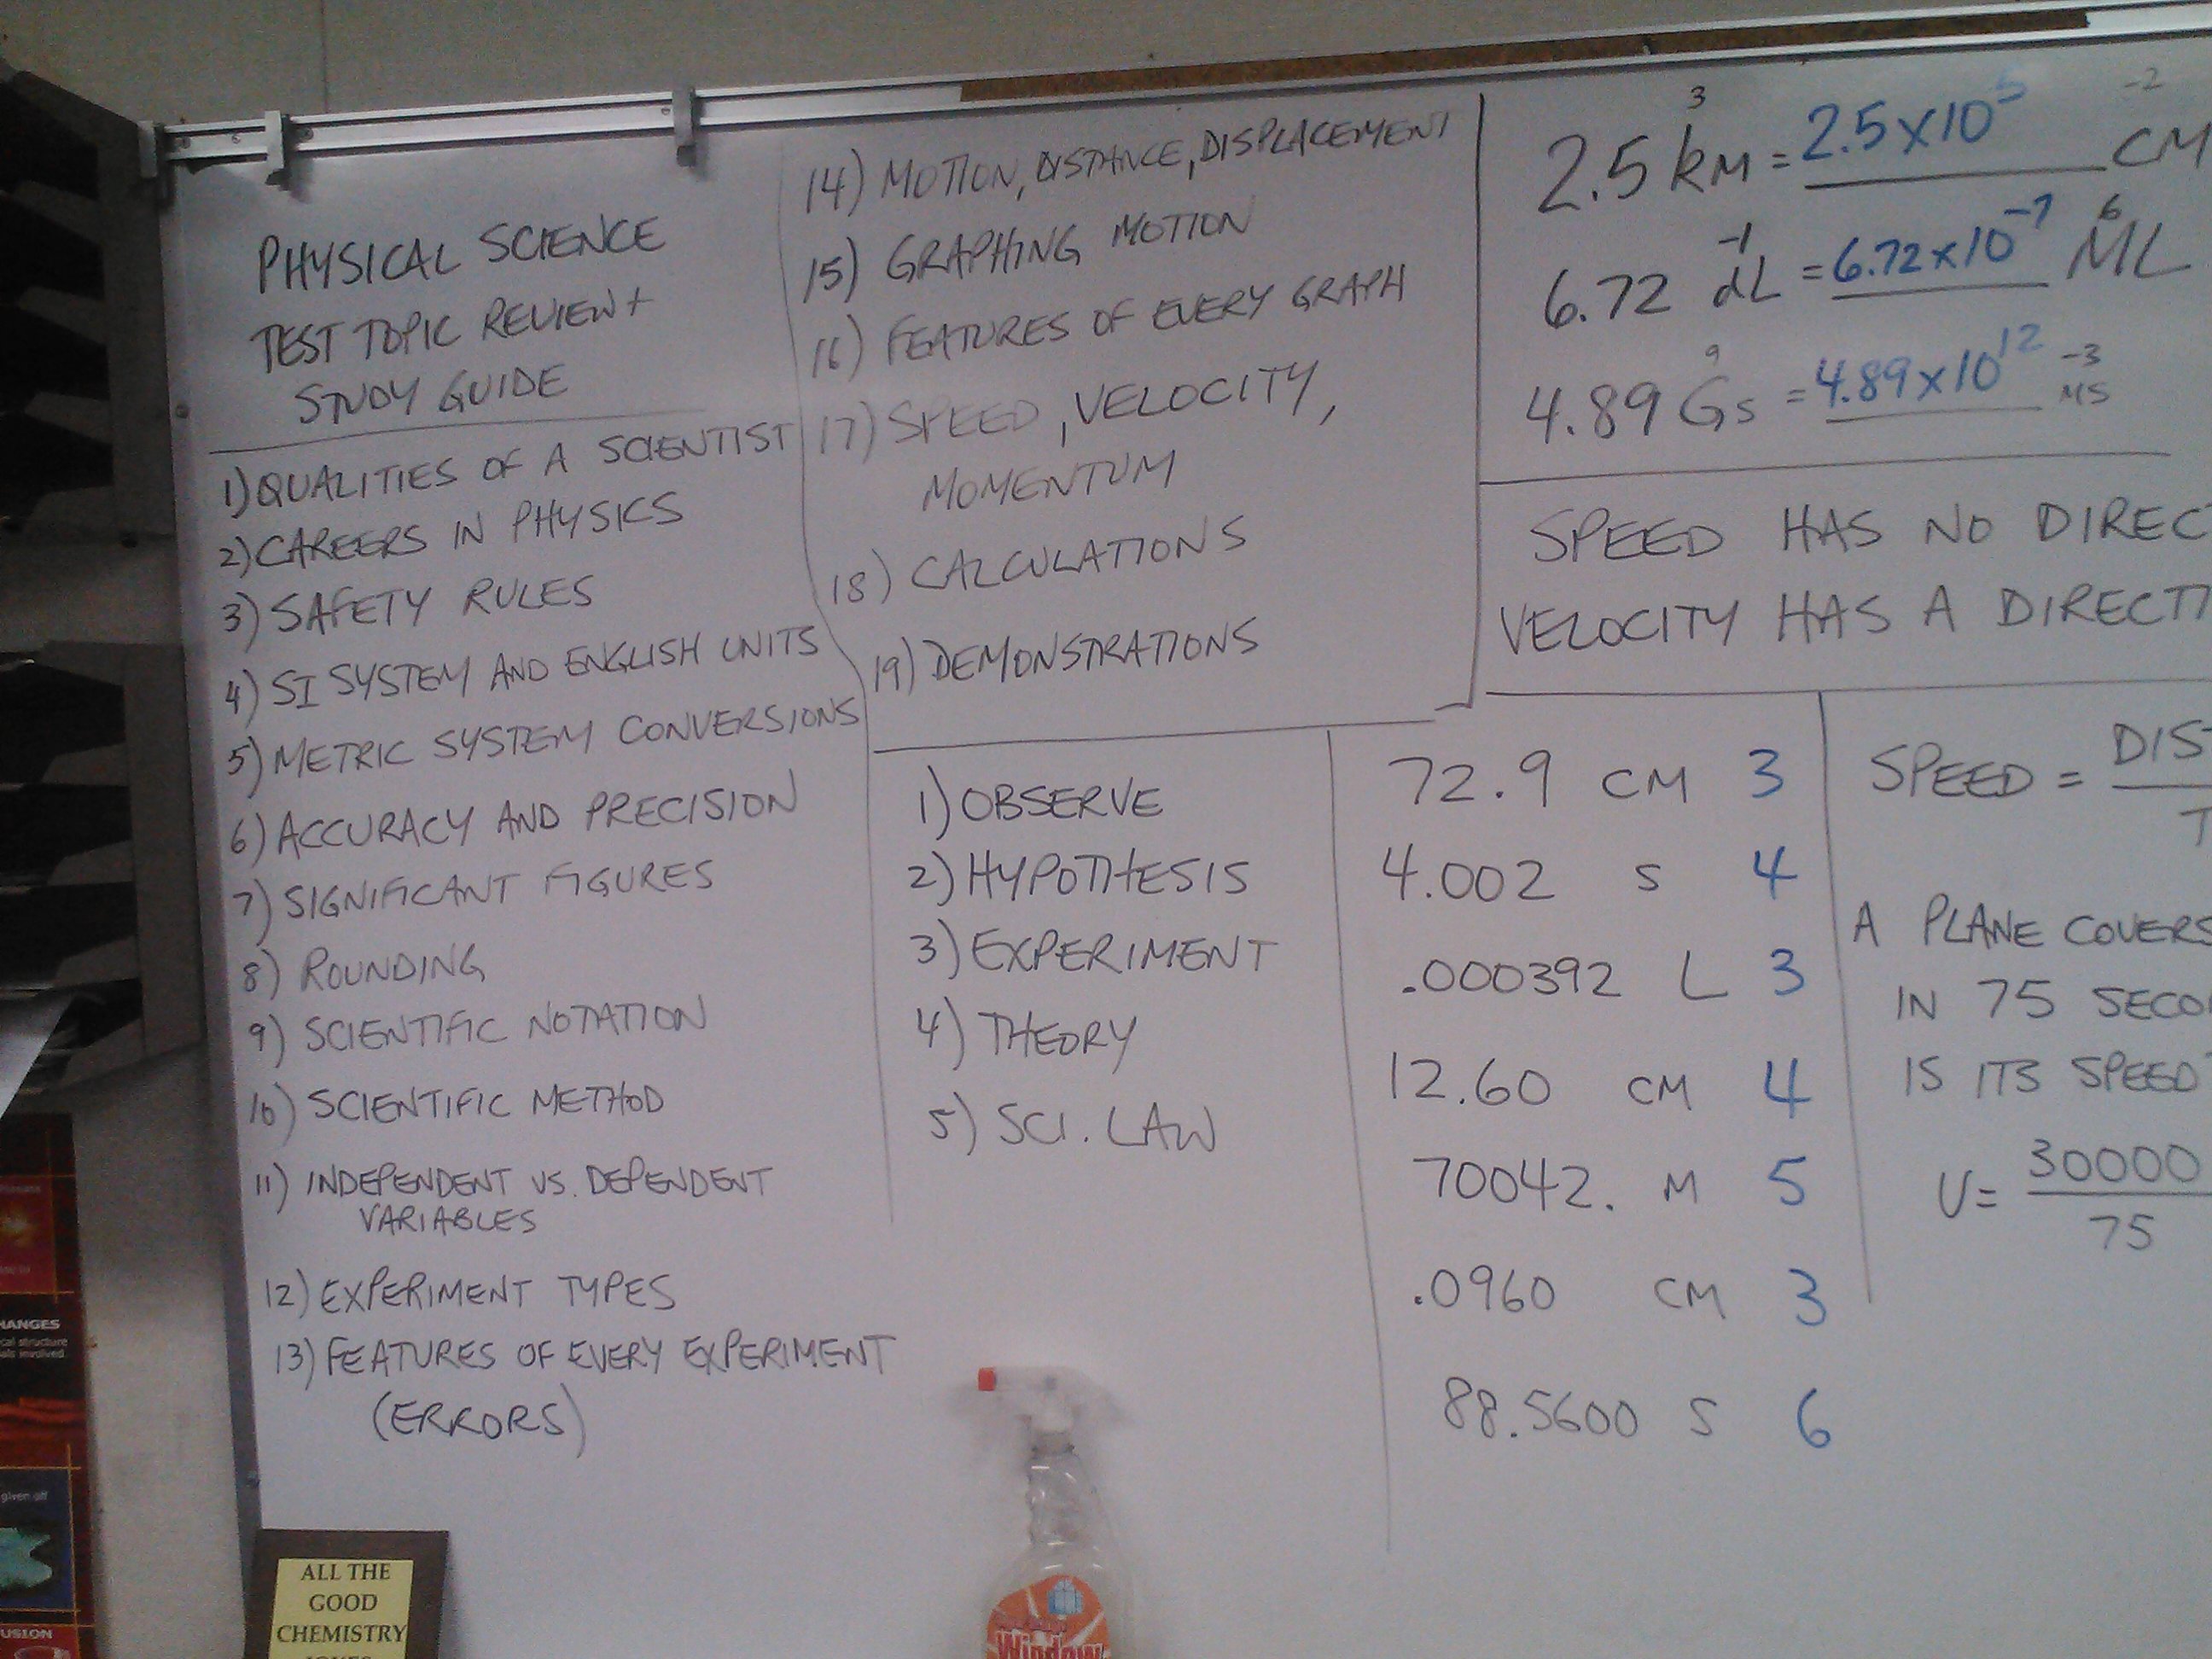 PHYSICAL SCIENCE
TEST TOPIC REVIEW +
STUDY GUIDE
1) QUALITIES OF A SCIENTIST
2) CAREERS IN PHYSICS
3) SAFETY RULES
4) SI SYSTEM AND ENGLISH UNITS
5) METRIC SYSTEM CONVERSIONS
6) ACCURACY AND PRECISION
7) SIGNIFICANT FIGURES
8) ROUNDING
9) SCIENTIFIC NOTATION
10) SCIENTIFIC METHOD
11) INDEPENDENT VS. DEPENDENT
VARIABLES
12) EXPERIMENT TYPES
13) FEATURES OF EVERY EXPERIMENT
(ERRORS)
14) MOTION, DISTANCE, DISPLACEMENT
15) GRAPHING MOTION
16) FEATURES OF EVERY GRAPH
17) SPEED, VELOCITY,
MOMENTUM
18) CALCULATIONS
19) DEMONSTRATIONS
1) OBSERVE
2) HYPOTHESIS
3) EXPERIMENT
4) THEORY
5) SCI. LAW
3 -2
2.5 km = 2.5 x 10⁵ CM
-1 6
6.72 dL = 6.72 x 10⁻⁷ ML
9 -3
4.89 Gs = 4.89 x 10¹² MS
SPEED HAS NO DIREC
VELOCITY HAS A DIRECTI
72.9 CM 3
4.002 S 4
.000392 L 3
12.60 CM 4
70042. M 5
.0960 CM 3
88.5600 S 6
SPEED = DIS
T
A PLANE COVERS
IN 75 SECO
IS ITS SPEED
V = 30000
75
HANGES
cal structure
als involved
given off
USION
ALL THE
GOOD
CHEMISTRY
JOKES
Window